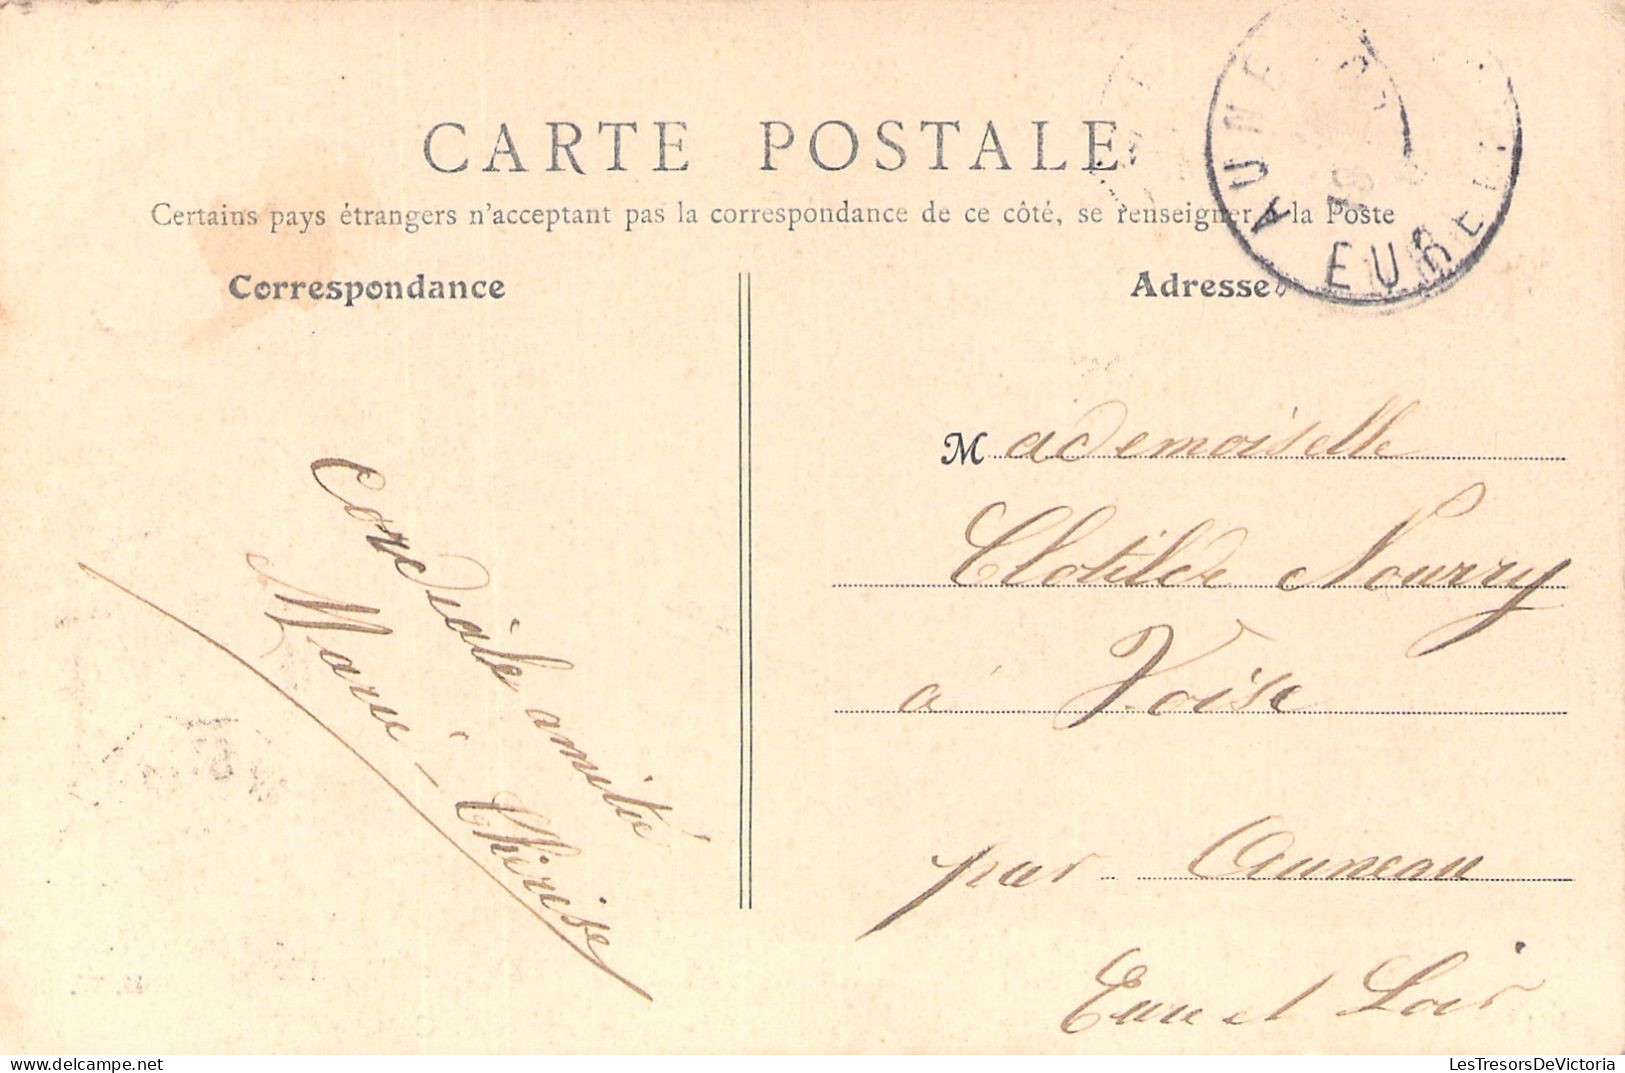 CARTE POSTALE
Certains pays étrangers n'acceptant pas la correspondance de ce côté, se renseigner à la Poste
Correspondance
Adresse
AUNE
EURE
Mademoiselle
Clotilde Nourry
à Voise
par Auneau
Eure et Loir
Cordiale amitié
Marie-Thérèse
LesTresorsDeVictoria